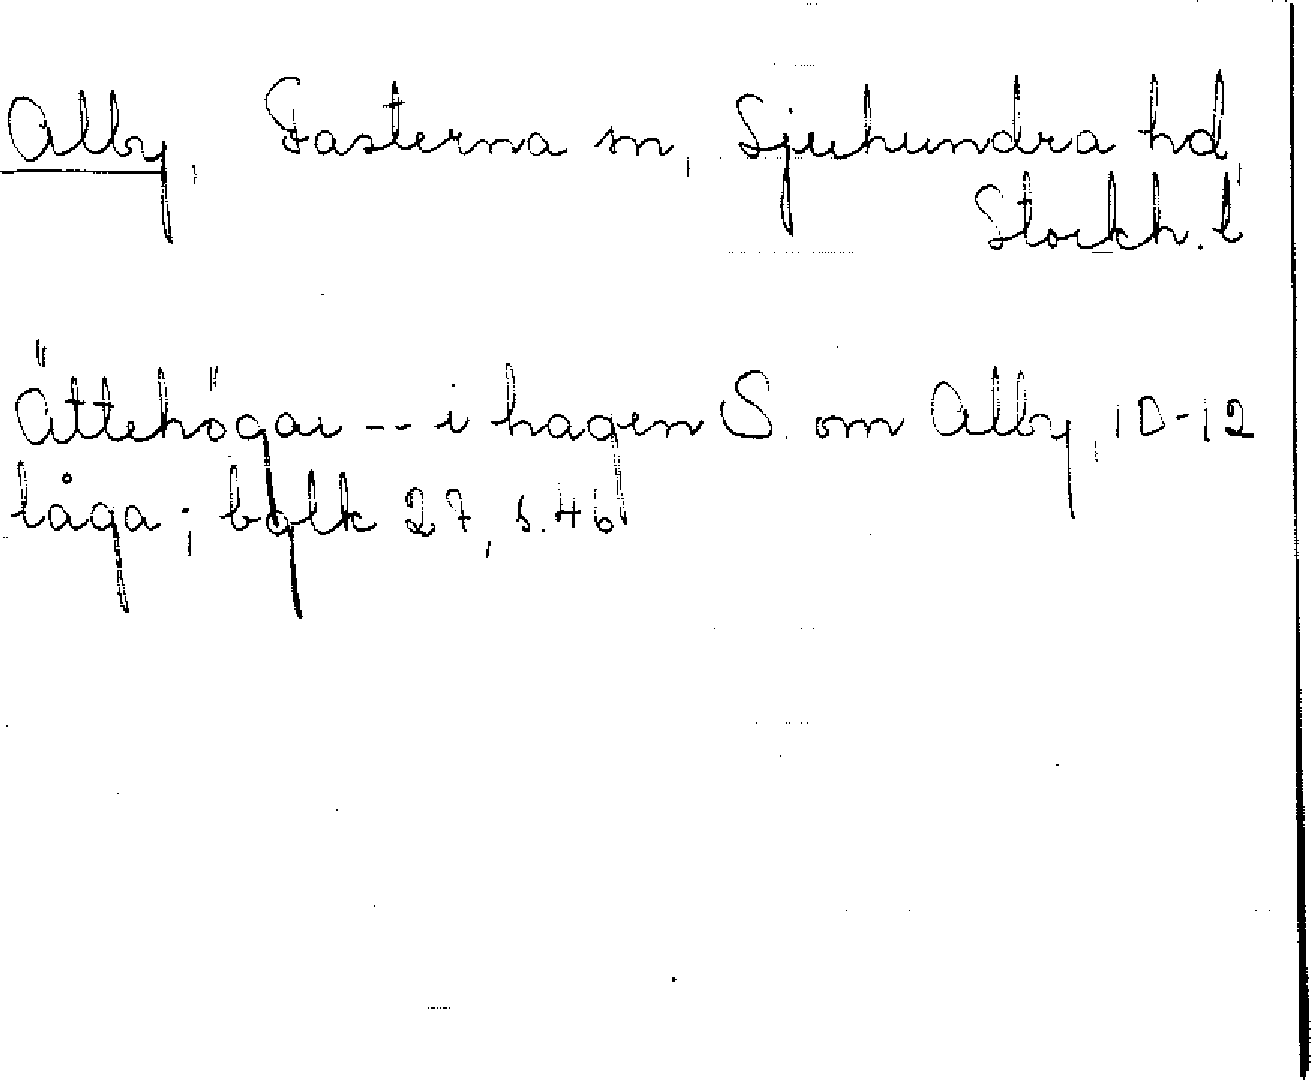 Alby, Fasterna sn, Sjuhundra hd,
Stockh. l
Ättehögar -- i hagen S. om Alby, 10-12
låga; bqlk 27, s. 46